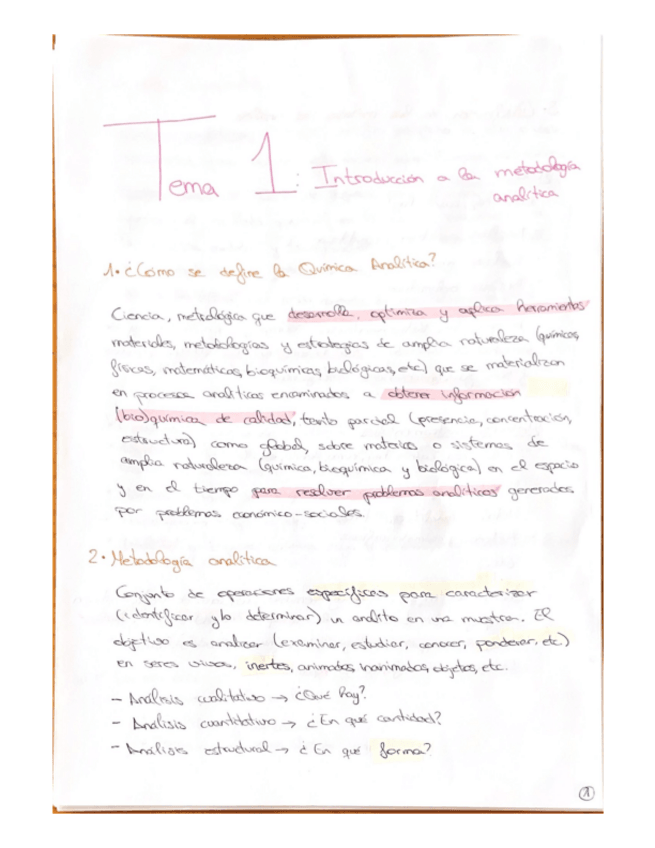 Tema 1: Introducción a la metodología
analítica
1. ¿Cómo se define la Química Analítica?
Ciencia, metrológica que desarrolla, optimiza y aplica herramientas
materiales, metodologías y estrategias de amplia naturaleza (químicas,
físicas, matemáticas, bioquímicas, biológicas, etc) que se materializan
en procesos analíticos encaminados a obtener información
(bio)química de calidad, tanto parcial (presencia, concentración,
estructura) como global, sobre materias o sistemas de
amplia naturaleza (química, bioquímica y biológica) en el espacio
y en el tiempo para resolver problemas analíticos generados
por problemas económico-sociales.
2. Metodología analítica
Conjunto de operaciones específicas para caracterizar
(identificar y/o determinar) un analito en una muestra. El
objetivo es analizar (examinar, estudiar, conocer, ponderar, etc)
en seres vivos, inertes, animados, inanimados, objetos, etc.
- Análisis cualitativo → ¿Qué hay?
- Análisis cuantitativo → ¿En qué cantidad?
- Análisis estructural → ¿En qué forma?
1